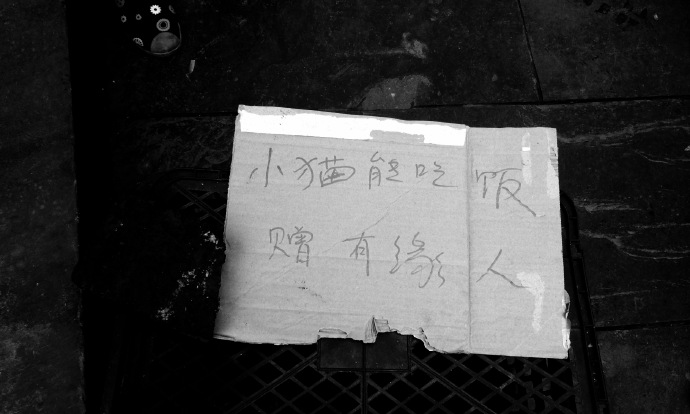 小猫能吃饭
赠有缘人